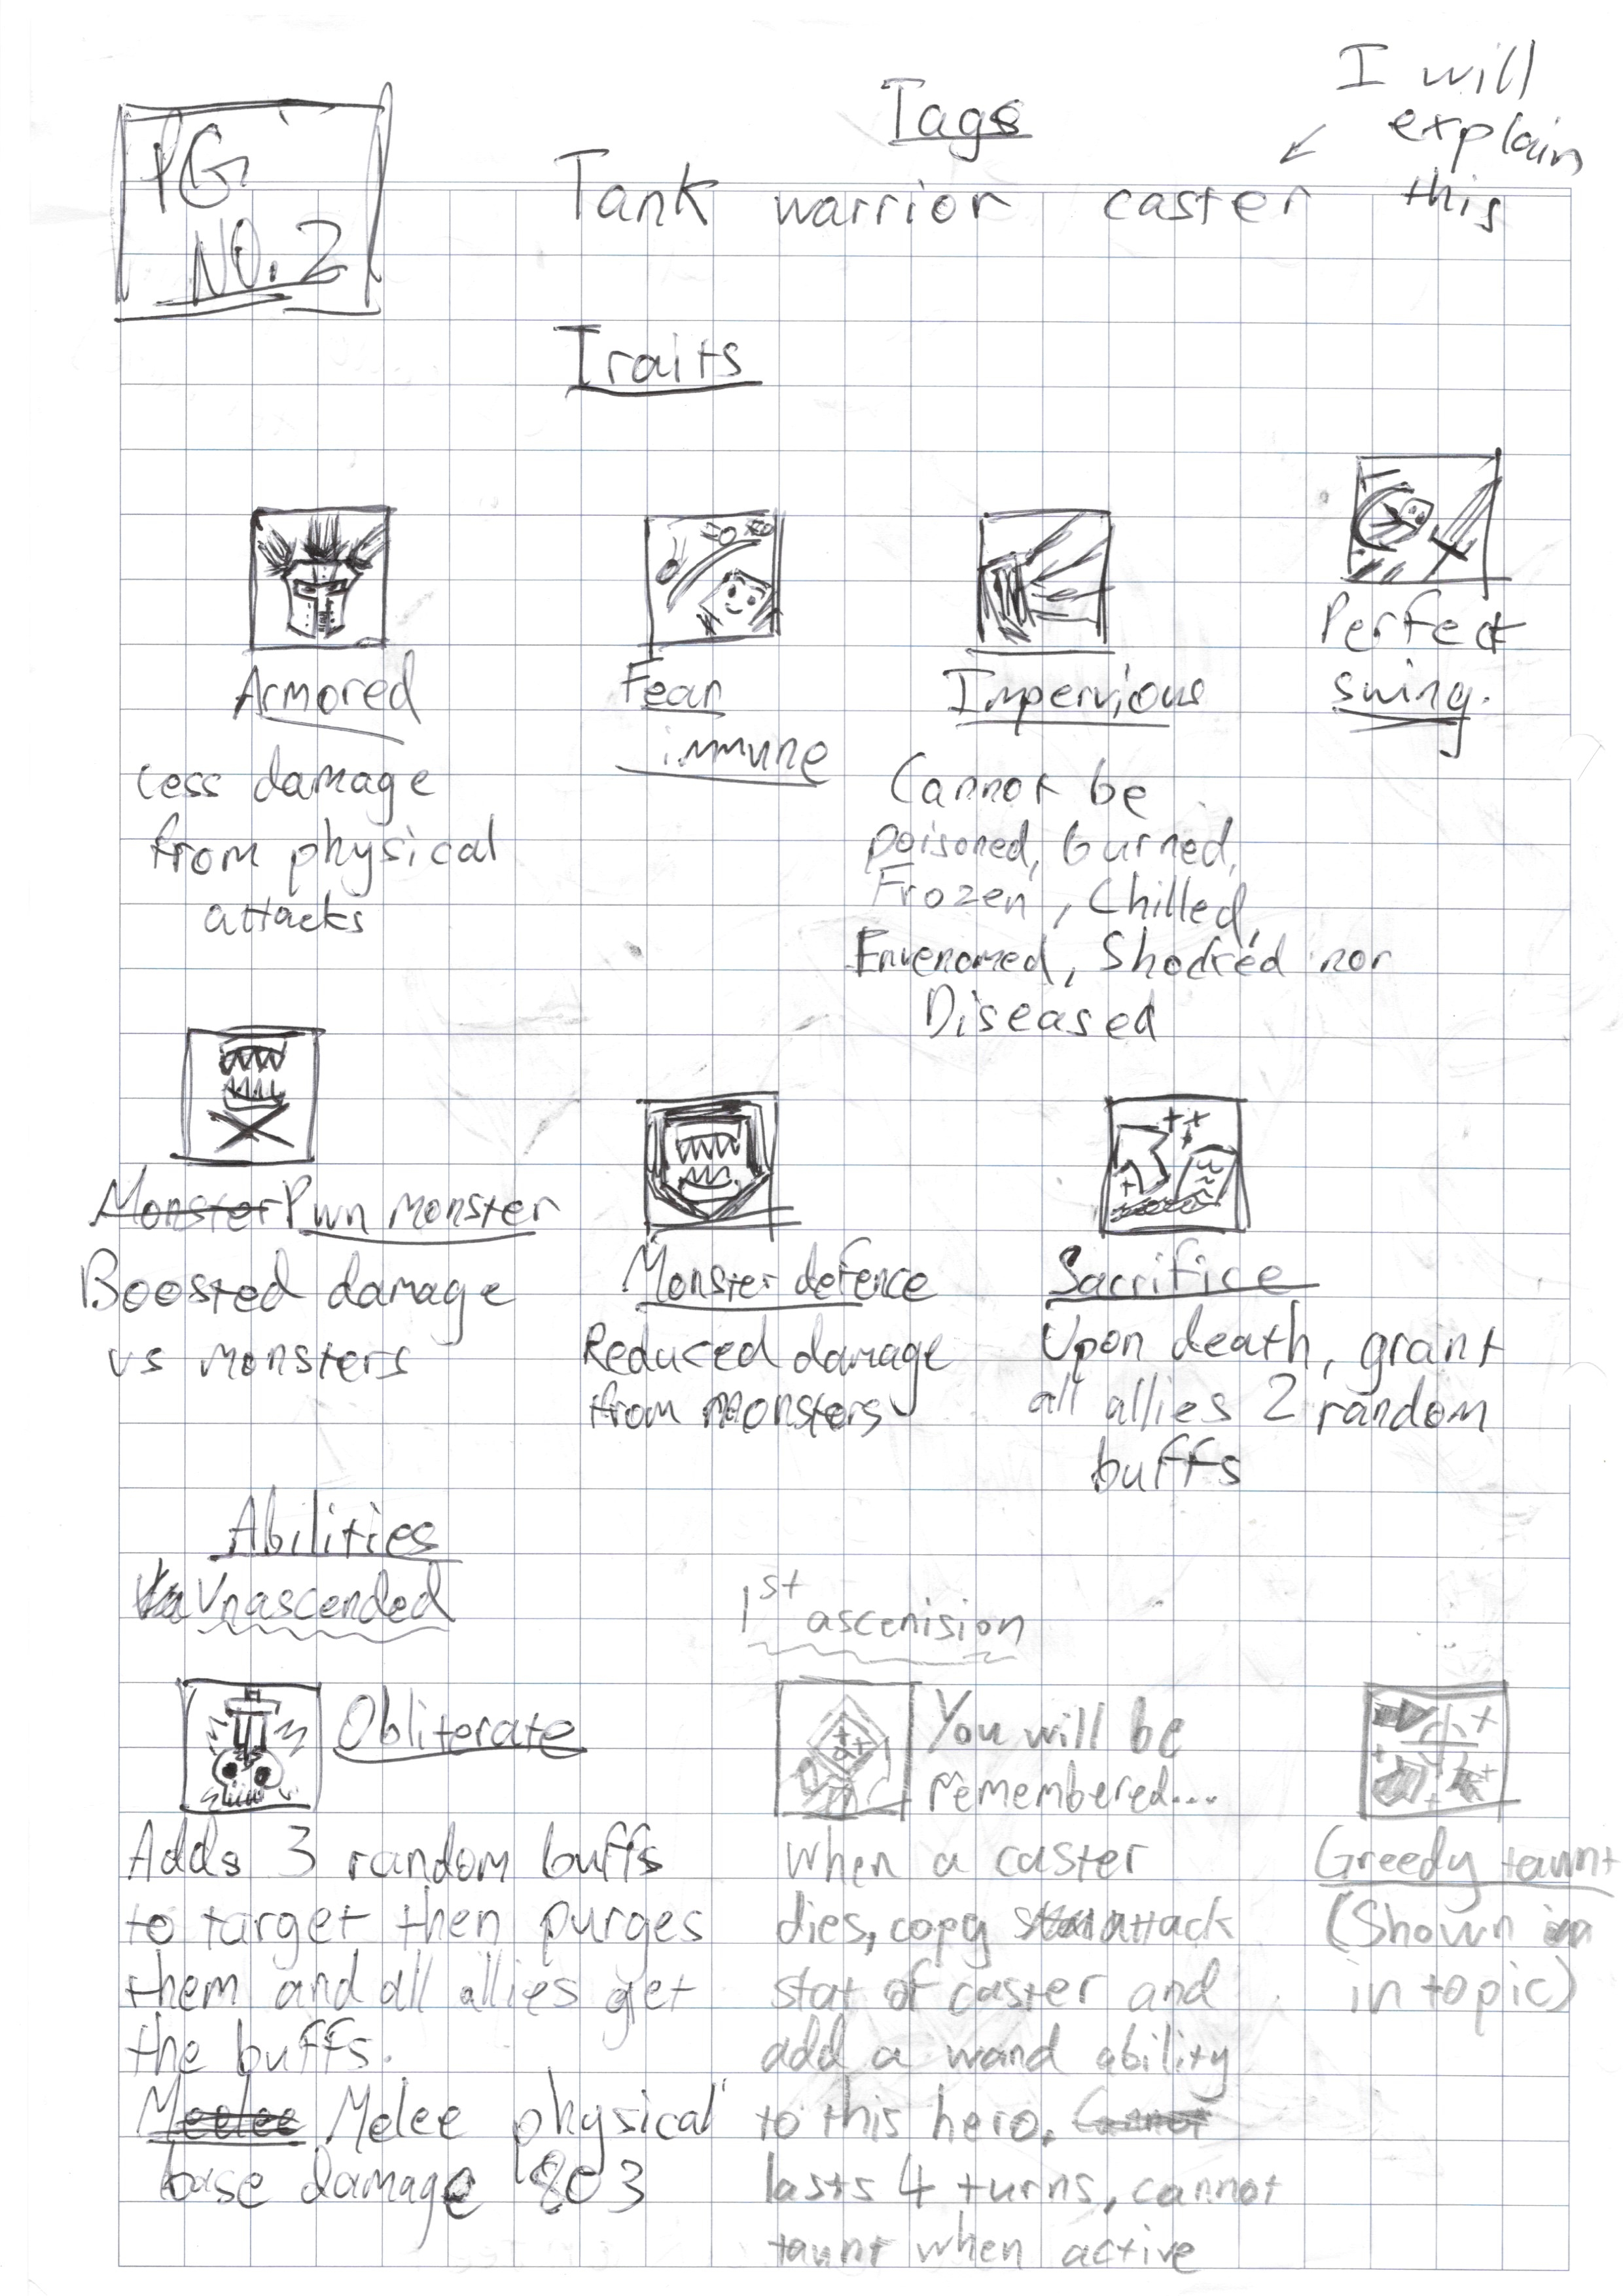 I will
explain
this
PG.
NO. 2
Tags
Tank warrior caster
Traits
Armored
Less damage
from physical
attacks
Fear
immune
Impervious
Cannot be
poisoned, burned,
Frozen, Chilled,
Envenomed, Shocked nor
Diseased
Perfect
swing.
Monster Pwn monster
Boosted damage
vs monsters
Monster defence
Reduced damage
from monsters
Sacrifice
Upon death, grant
all allies 2 random
buffs
Abilities
Unascended
Obliterate
Adds 3 random buffs
to target then purges
them and all allies get
the buffs.
Melee physical
base damage 803
1st ascenision
You will be
remembered...
When a caster
dies, copy attack
stat of caster and
add a wand ability
to this hero.
lasts 4 turns, cannot
taunt when active
Greedy taunt
(Shown
in topic)